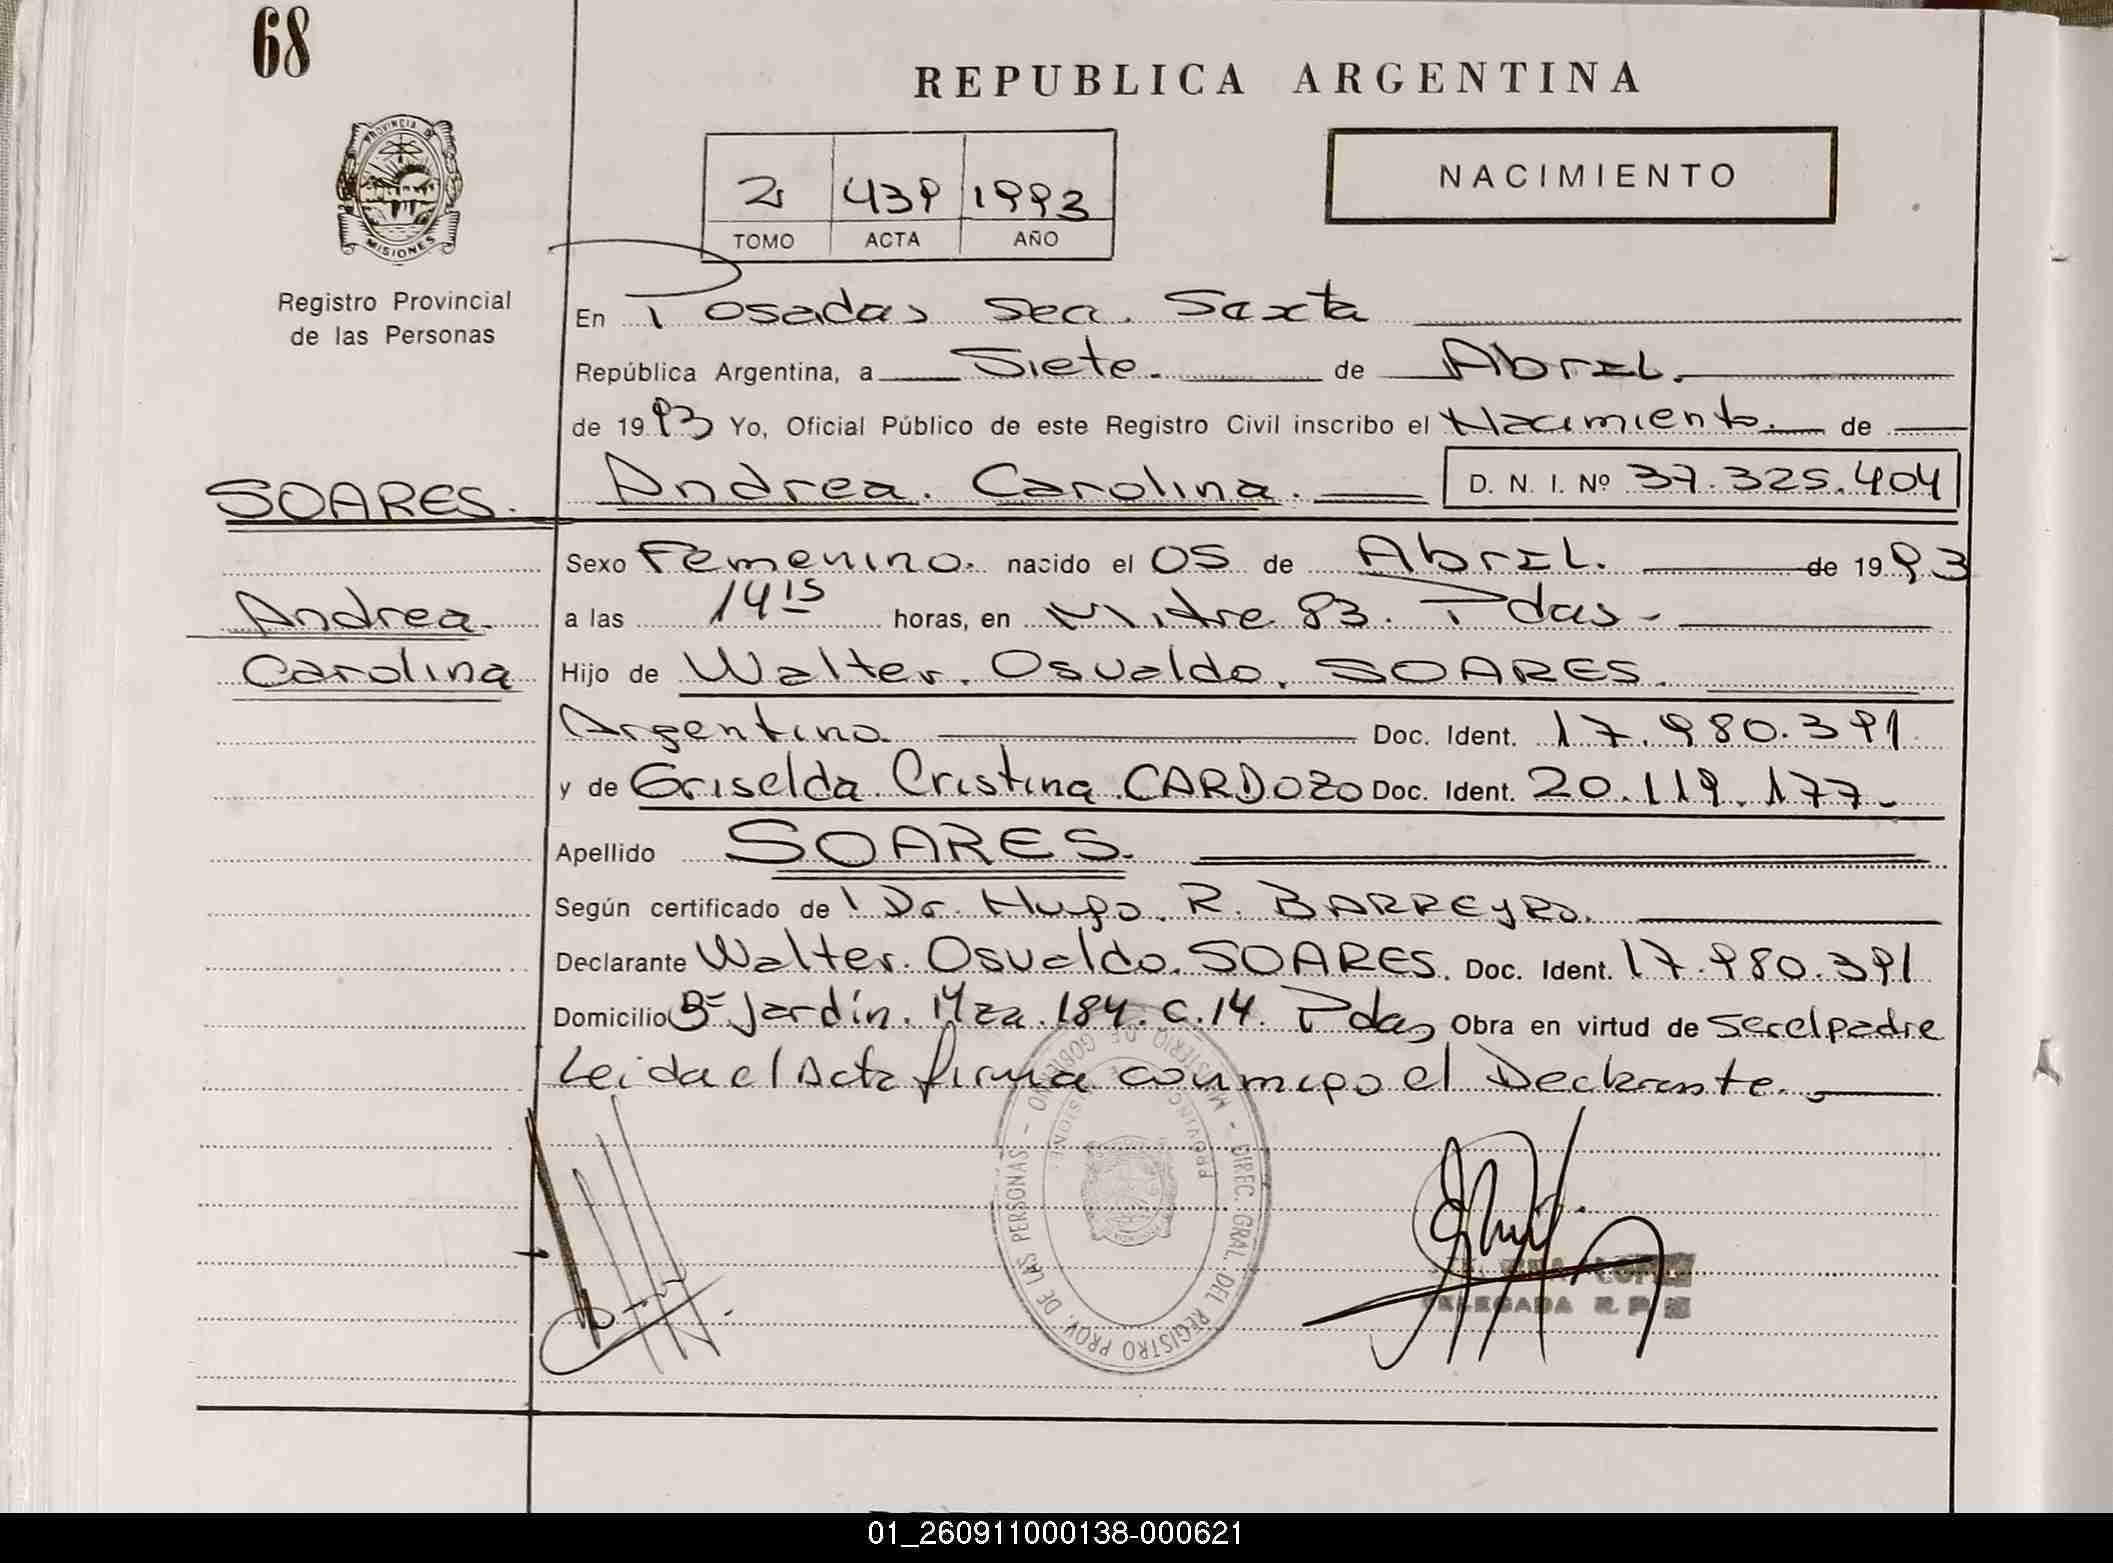 68
REPUBLICA ARGENTINA
NACIMIENTO
2 439 1993
TOMO ACTA AÑO
PROVINCIA D
MISIONES
Registro Provincial
de las Personas
En Posadas Sec. Sexta
República Argentina, a Siete. de Abril.
de 1993 Yo, Oficial Público de este Registro Civil inscribo el Nacimiento. de
SOARES. Andrea. Carolina. D. N. I. Nº 37.325.404
Sexo Femenino. nacido el 05 de Abril. de 1993
Andrea. a las 14 15 horas, en Mitre 83. Pdas-
Carolina Hijo de Walter. Osvaldo. SOARES.
Argentino Doc. Ident. 17.980.391
y de Griselda Cristina CARDOZO Doc. Ident. 20.119.177-
Apellido SOARES.
Según certificado de Dr. Hugo. R. BARREYRO.
Declarante Walter. Osvaldo. SOARES. Doc. Ident. 17.980.391
Domicilio Bº Jardín. Mza. 184. C. 14. Pdas Obra en virtud de ser el padre
Leida el Acta firma conmigo el Declarante.
MINISTERIO DE GOBIERNO - DIREC. GRAL. DEL REGISTRO PROV. DE LAS PERSONAS -
PROVINCIA MISIONES
DELEGADA R. P.
01_260911000138-000621